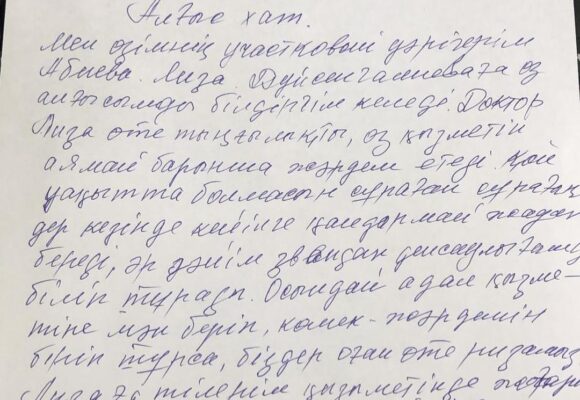 Алғыс хат.
Мен өзімнің участковый дәрігерім
Абиева Лиза Дүйсенғалиеваға өз
алғысымды білдіргім келеді. Доктор
Лиза өте тыңғылықты, өз қызметін
аямай барынша жәрдем етеді. Қай
уақытта болмасын сұраған сұрағың
дер кезінде кейінге қалдырмай жадап
береді, әр дәйім звандап денсаулығамыз
біліп тұрады. Осындай адал қызме-
тіне мән беріп, көмек-жәрдемін
біріп тұрса, біздер оған өте ризамыз
Лизаға тілерім қызметінде жоғары